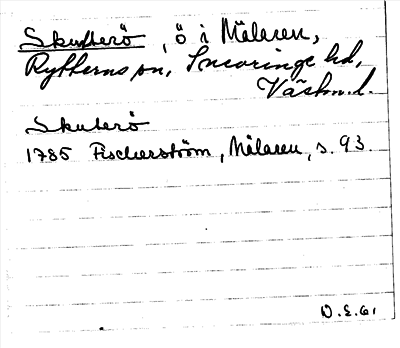 Skutterö, ö i Mälaren,
Rytterns sn, Snevringe hd,
Västm.l.
Skuterö
1785 Fischerström, Mälaren, s. 93.
D.E.61